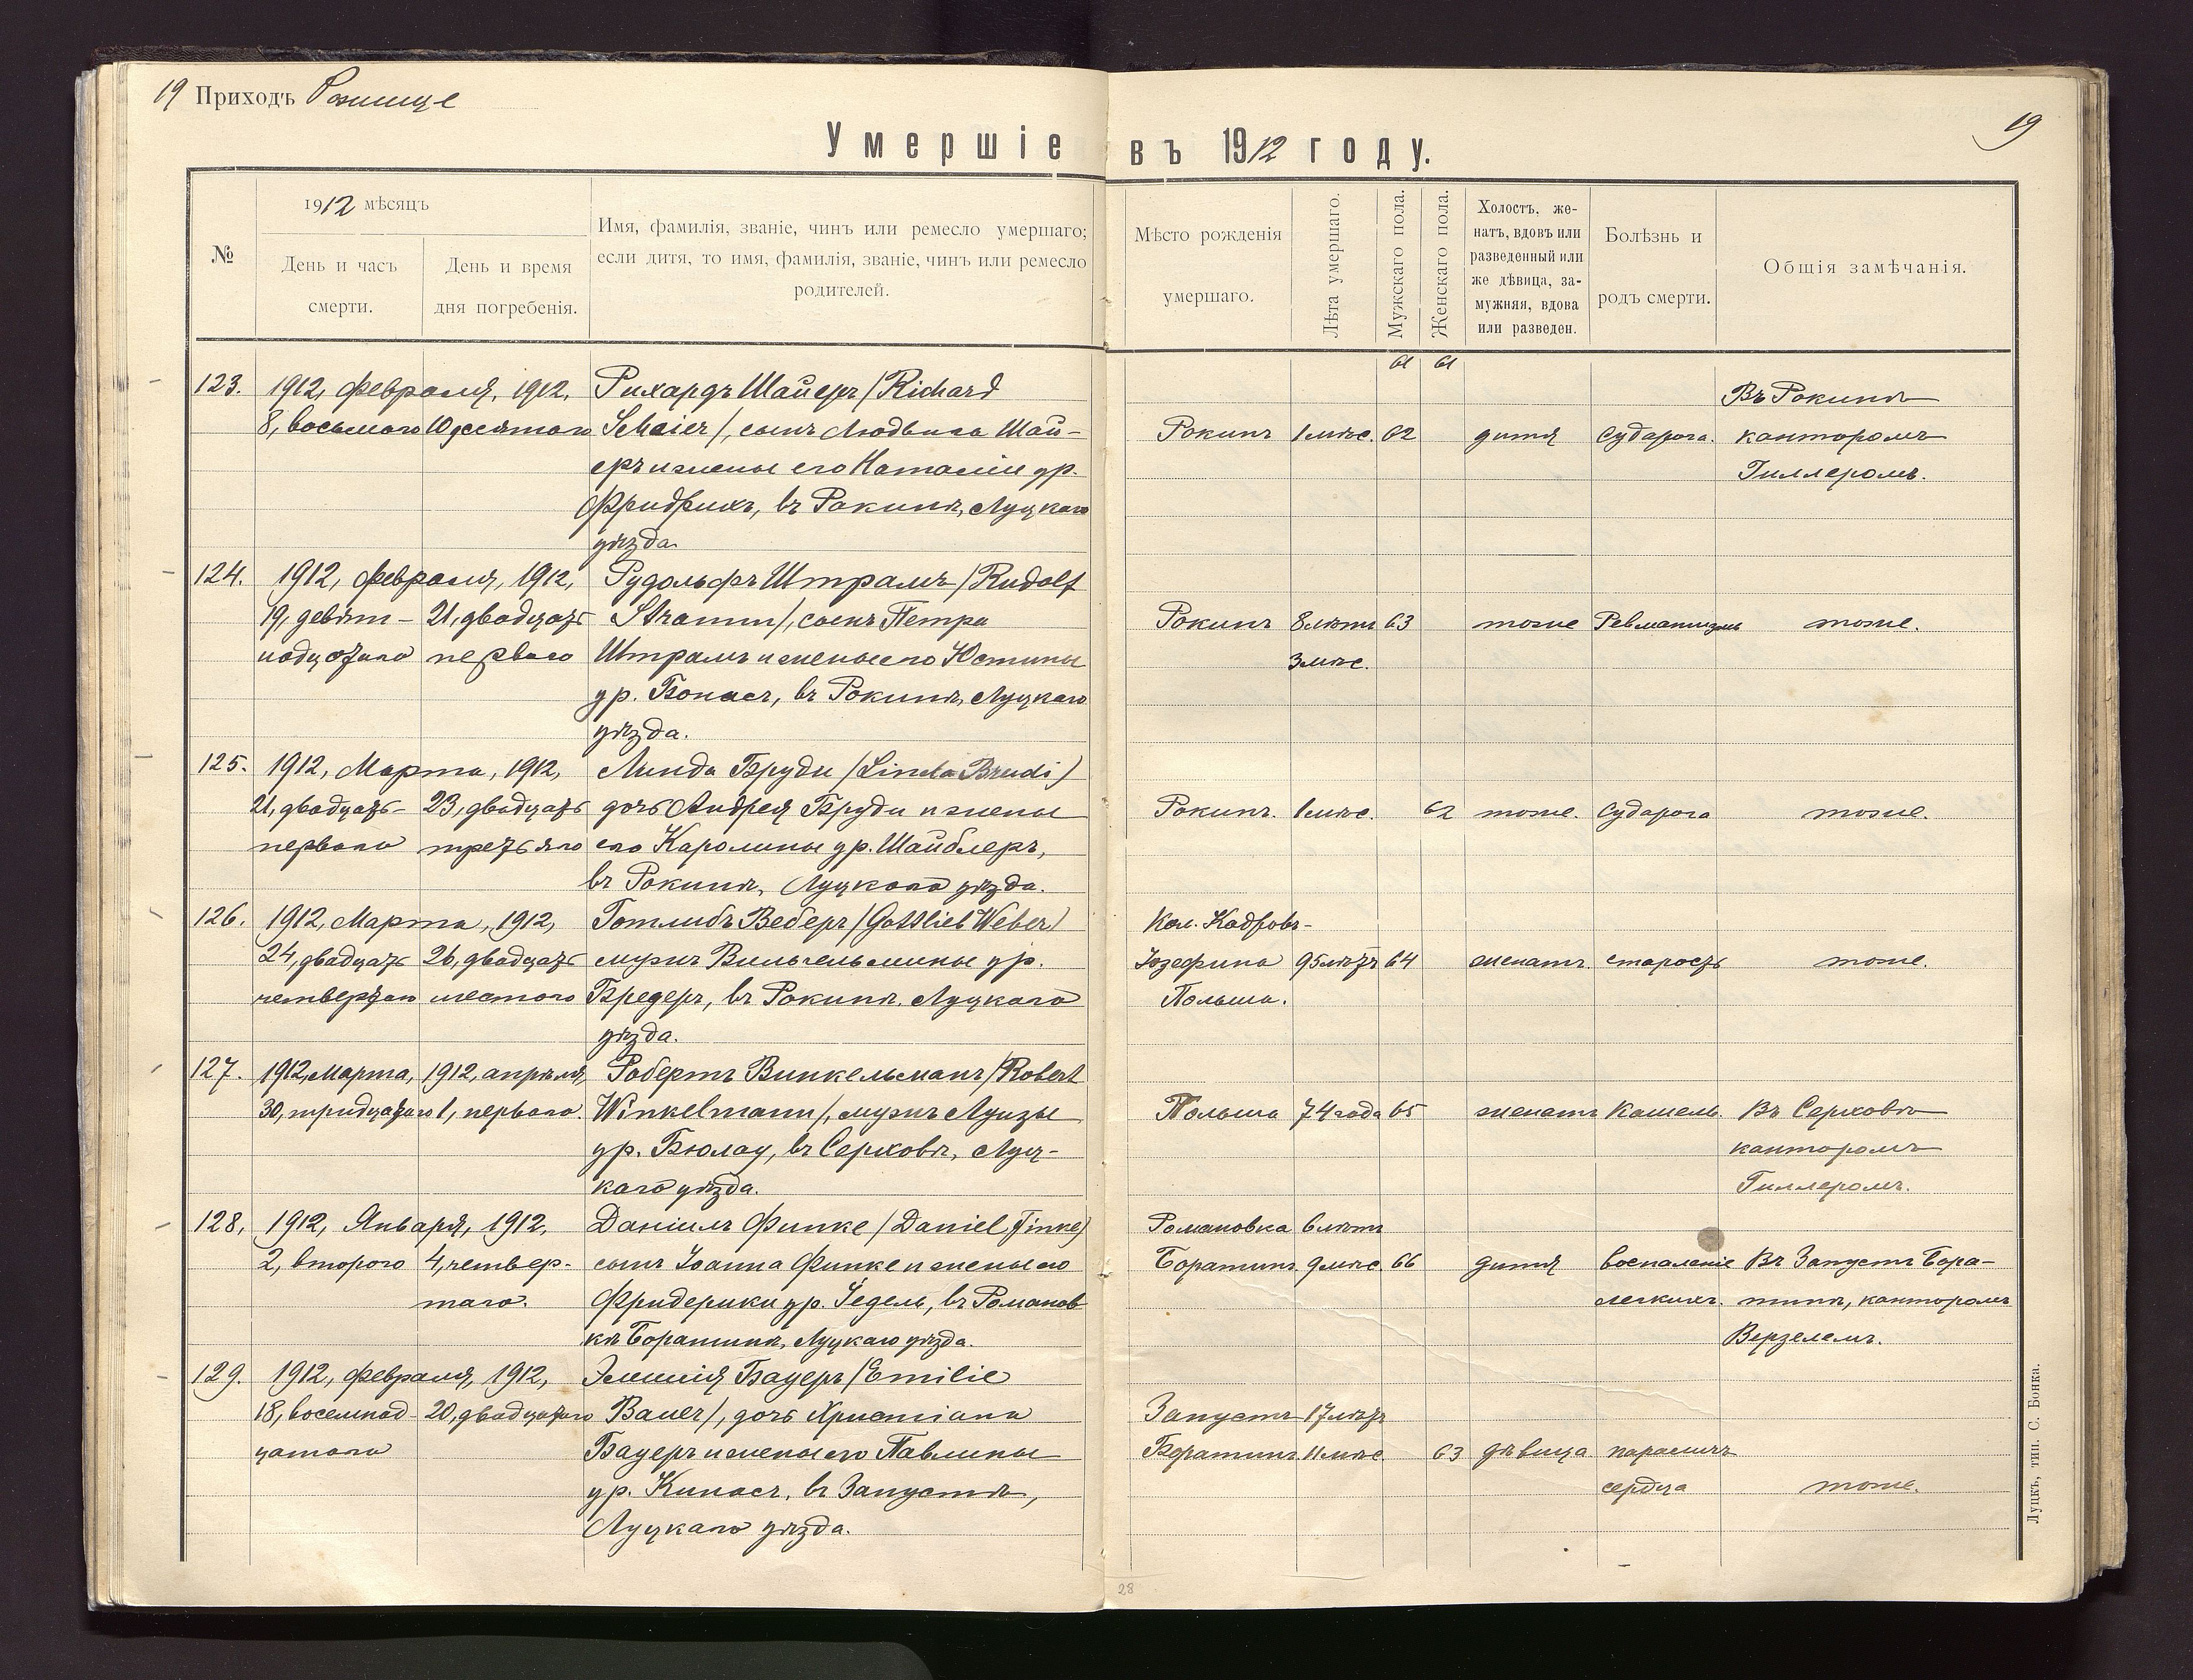 19 Приходъ Рожище
19
Умершіе въ 1912 году.
№
1912 мѣсяцъ
День и часъ смерти.
День и время дня погребенія.
Имя, фамилія, званіе, чинъ или ремесло умершаго;
если дитя, то имя, фамилія, званіе, чинъ или ремесло
родителей.
Мѣсто рожденія
умершаго.
Лѣта умершаго.
Мужскаго пола.
Женскаго пола.
Холостъ, же-
натъ, вдовъ или
разведенный или
же дѣвица, за-
мужняя, вдова
или разведен.
Болѣзнь и
родъ смерти.
Общія замѣчанія.
61 61
123. 1912, февраля, 1912, Рихардъ Шайеръ /Richard Въ Рокиняхъ
8, восьмого 10 десятого Scheier/, сынъ Людвига Шай- Рокини 1 мѣс. 62 дитя Судорога. канторомъ
еръ и жены его Наталіи ур. Гиллеромъ.
Фридрихъ, въ Рокиняхъ, Луцкаго
уѣзда.
124. 1912, февраля, 1912, Рудольфъ Штрамъ /Rudolf
19, девят- 21, двадцать Stramm/, сынъ Петра Рокини 8 лѣтъ 63 тоже Ревматизмъ тоже.
надцатаго перваго Штрамъ и жены его Юстины 3 мѣс.
ур. Бонасъ, въ Рокиняхъ, Луцкаго
уѣзда.
125. 1912, Марта, 1912, Линда Бруди /Linda Brudi/
21, двадцать- 23, двадцать дочь Андрея Бруди и жены Рокини. 1 мѣс. 62 тоже. Судорога тоже.
перваго третьяго его Каролины ур. Шайблеръ,
въ Рокиняхъ, Луцкаго уѣзда.
126. 1912, Марта, 1912, Готлибъ Веберъ /Gottlieb Weber/ Кол. Кадровъ-
24, двадцать 26, двадцать мужъ Вильгельмины ур. Юзефина 95 лѣтъ 64 женатъ. старость тоже.
четвертаго шестого Бредеръ, въ Рокиняхъ, Луцкаго Польша.
уѣзда.
127. 1912, Марта, 1912, апрѣля, Робертъ Винкельманъ /Robert
30, тридцатаго 1, перваго. Winkelmann/, мужъ Луизы Польша 74 года 65 женатъ Кашель. Въ Серховѣ
ур. Бюлау, въ Серховѣ, Луц- канторомъ
каго уѣзда. Гиллеромъ.
128. 1912, Января, 1912, Даніилъ Финке /Daniel Finke/ Романовка 6 лѣтъ
2, второго 4, четвер- сынъ Іоанна Финке и жены его Боратинъ 9 мѣс. 66 дитя воспаленіе Въ Запустѣ Бора-
таго. Фридерики ур. Гедель, въ Романов- легкихъ. тинѣ, канторомъ
кѣ Боратинѣ, Луцкаго уѣзда. Верзелемъ.
129. 1912, февраля, 1912, Эмилія Бауеръ /Emilie
18, восемнад- 20, двадцатаго Bauer/, дочь Христіана Запустъ 17 лѣтъ
цатаго Бауеръ и жены его Павлины Боратинъ 11 мѣс. 63 дѣвица параличъ
ур. Кинасъ, въ Запустѣ, сердца тоже.
Луцкаго уѣзда.
Луцкъ, тип. С. Бонка.
28